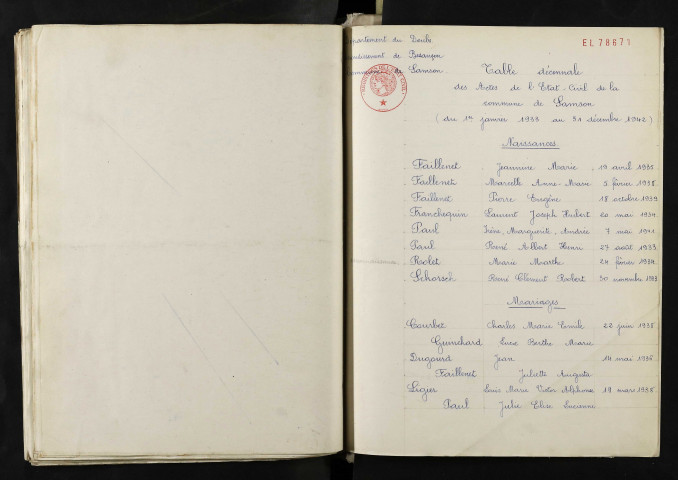 partement du Doubs
EL 78671
ndissement de Besançon
Commune de Samson
Table décennale
des Actes de l'Etat-Civil de la
commune de Samson
(du 1er janvier 1933 au 31 décembre 1942)
Naissances
Faillenet Jeannine Marie 19 avril 1935
Faillenet Marcelle Anne-Marie 5 février 1938
Faillenet Pierre Eugène 18 octobre 1939
Franchequin Laurent Joseph Hubert 20 mai 1934
Paul Irène, Marguerite, Andrée 7 mai 1941
Paul René Albert Henri 27 août 1933
Rolet Marie Marthe 24 février 1934
Schorsch René Clément Robert 30 novembre 1933
Mariages
Courbet Charles Marie Emile 22 juin 1938
Guinchard Luce Berthe Marie
Dugourd Jean 14 mai 1938
Faillenet Juliette Augusta
Ligier Louis Marie Victor Alphonse 19 mars 1938
Paul Julie Elise Lucienne